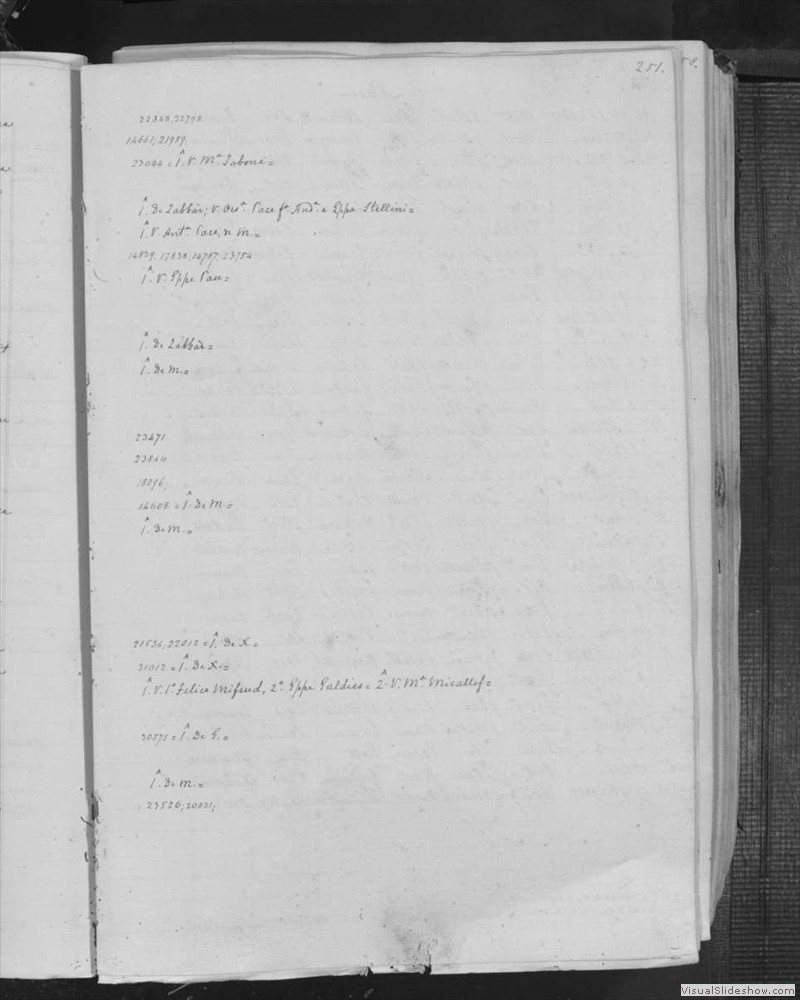 251.
58.
22848, 22798
14661, 21959,
23044 = 1. V. Mª Sabone =
1. De Zabbar; V. Orsª Pace fª Andª e Gppa Stellini =
1. V. Antª Pace, n M. =
14839, 17838, 14787, 23754
1. V. Gppe Pace =
1. De Zabbar =
1. De M. =
23471
23844
18896;
14608 = 1. De M. =
1. De M. =
21536, 22012 = 1. De X. =
31012 = 1. De X. =
1. V. 1º Felice Mifsud, 2º Gppe Galdies = 2. V. Mª Micallef =
30575 = 1. De G. =
1. De M. =
23526, 20031;
VisualSlideshow.com